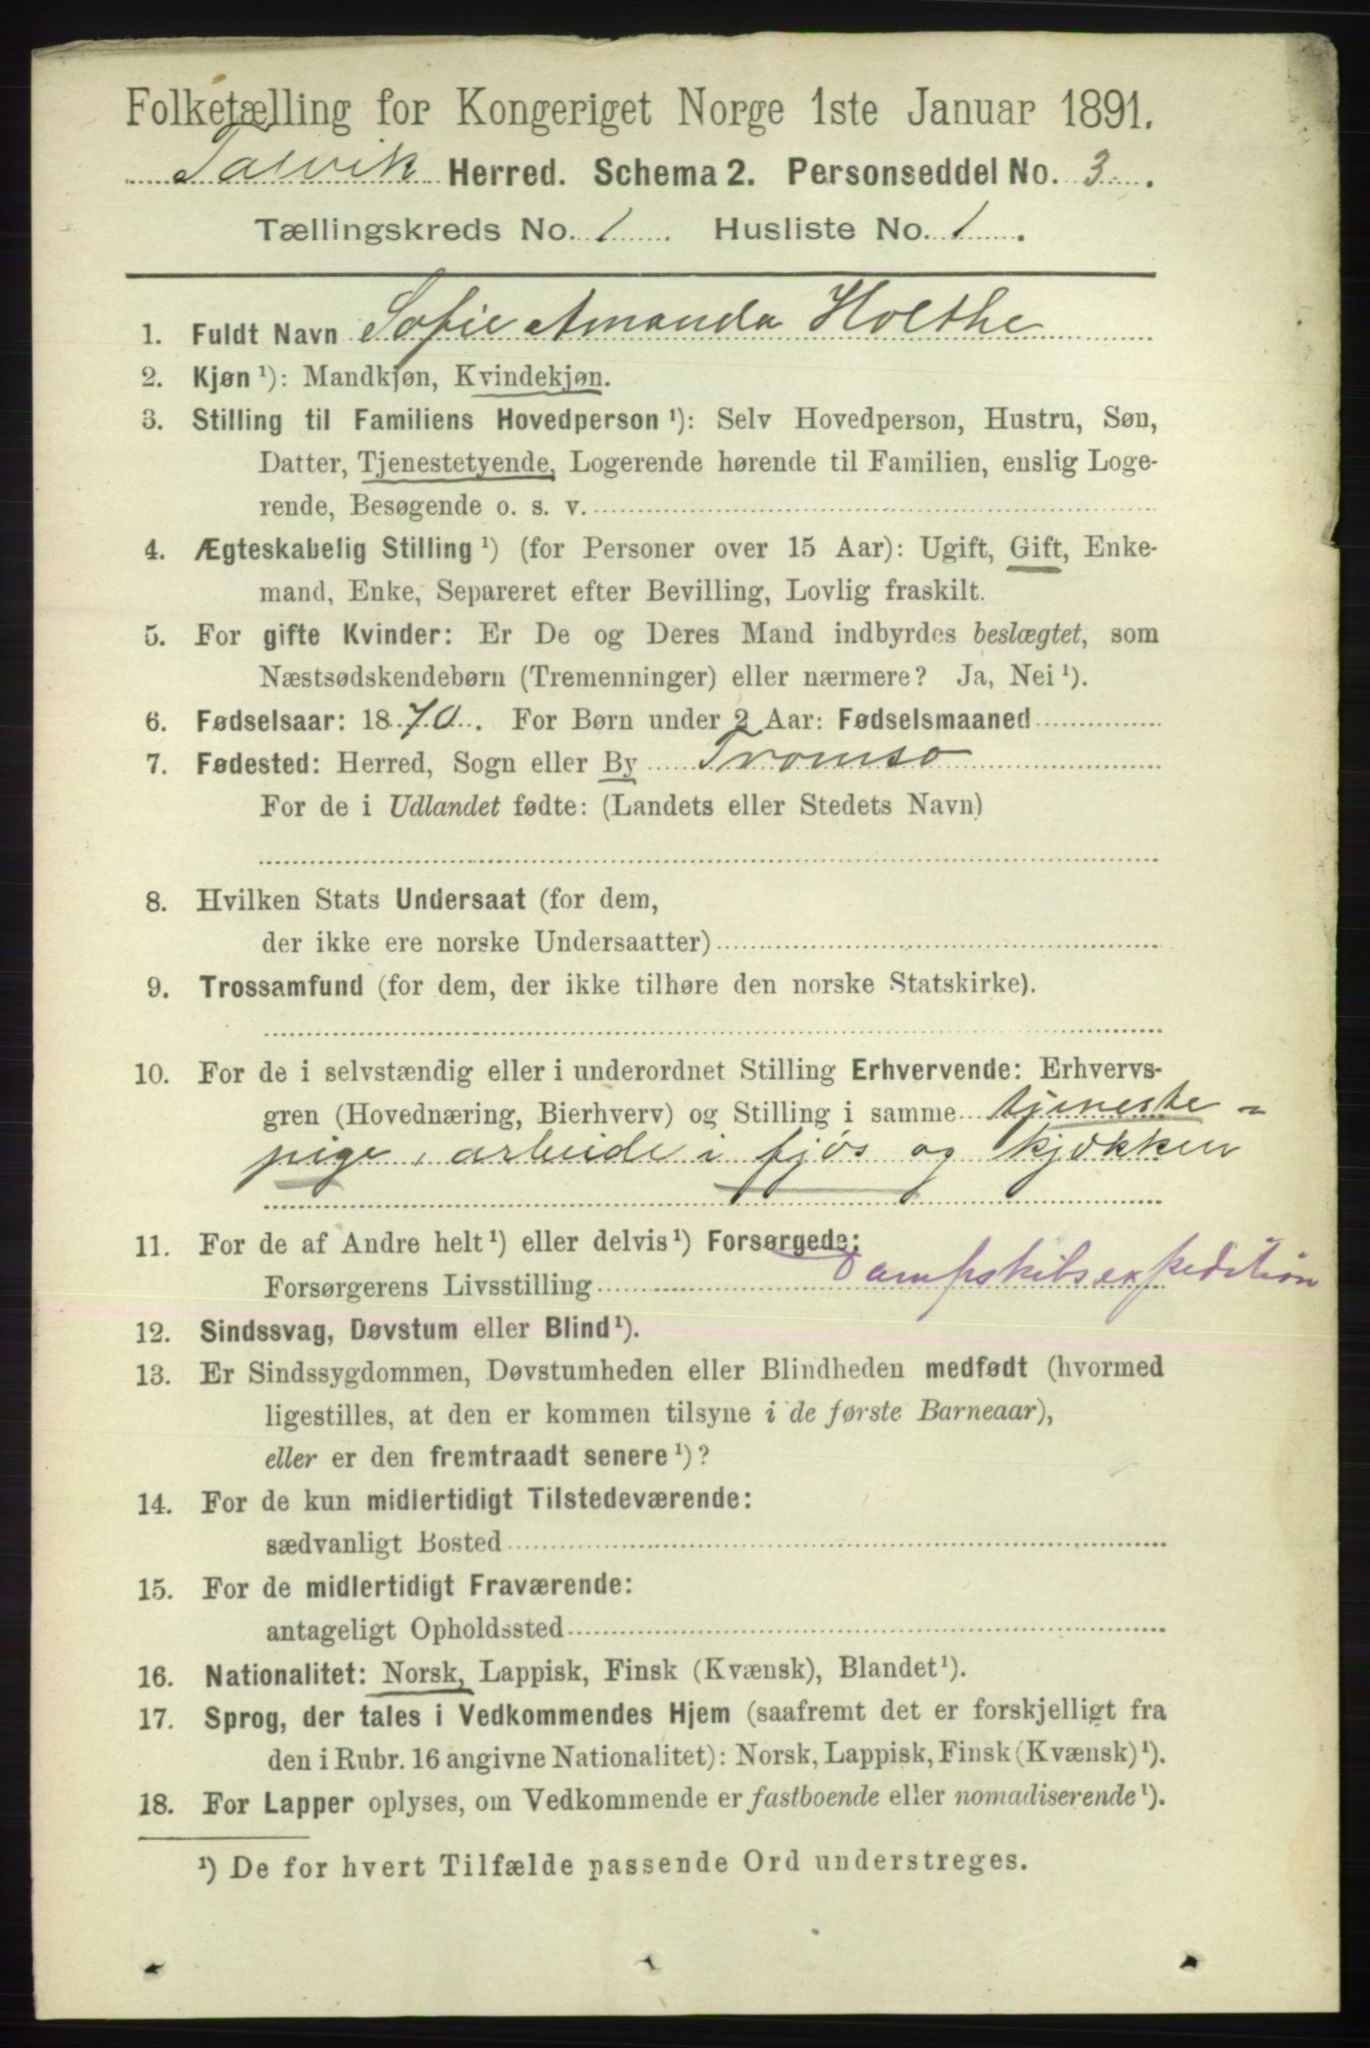 Folketælling for Kongeriget Norge 1ste Januar 1891.
Talvik Herred. Schema 2. Personseddel No. 3.
Tællingskreds No. 1 Husliste No. 1.
1. Fuldt Navn Sofie Amanda Holthe
2. Kjøn ¹): Mandkjøn, Kvindekjøn.
3. Stilling til Familiens Hovedperson ¹): Selv Hovedperson, Hustru, Søn,
Datter, Tjenestetyende, Logerende hørende til Familien, enslig Loge-
rende, Besøgende o. s. v.
4. Ægteskabelig Stilling ¹) (for Personer over 15 Aar): Ugift, Gift, Enke-
mand, Enke, Separeret efter Bevilling, Lovlig fraskilt.
5. For gifte Kvinder: Er De og Deres Mand indbyrdes beslægtet, som
Næstsødskendebørn (Tremenninger) eller nærmere? Ja, Nei ¹).
6. Fødselsaar: 1870. For Børn under 2 Aar: Fødselsmaaned
7. Fødested: Herred, Sogn eller By Tromsø
For de i Udlandet fødte: (Landets eller Stedets Navn)
8. Hvilken Stats Undersaat (for dem,
der ikke ere norske Undersaatter)
9. Trossamfund (for dem, der ikke tilhøre den norske Statskirke).
10. For de i selvstændig eller i underordnet Stilling Erhvervende: Erhvervs-
gren (Hovednæring, Bierhverv) og Stilling i samme tjeneste-
pige, arbeide i fjøs og kjøkken
11. For de af Andre helt ¹) eller delvis ¹) Forsørgede:
Forsørgerens Livsstilling Dampskibsexpedition
12. Sindssvag, Døvstum eller Blind ¹).
13. Er Sindssygdommen, Døvstumheden eller Blindheden medfødt (hvormed
ligestilles, at den er kommen tilsyne i de første Barneaar),
eller er den fremtraadt senere ¹)?
14. For de kun midlertidigt Tilstedeværende:
sædvanligt Bosted
15. For de midlertidigt Fraværende:
antageligt Opholdssted
16. Nationalitet: Norsk, Lappisk, Finsk (Kvænsk), Blandet ¹).
17. Sprog, der tales i Vedkommendes Hjem (saafremt det er forskjelligt fra
den i Rubr. 16 angivne Nationalitet): Norsk, Lappisk, Finsk (Kvænsk) ¹).
18. For Lapper oplyses, om Vedkommende er fastboende eller nomadiserende ¹).
¹) De for hvert Tilfælde passende Ord understreges.